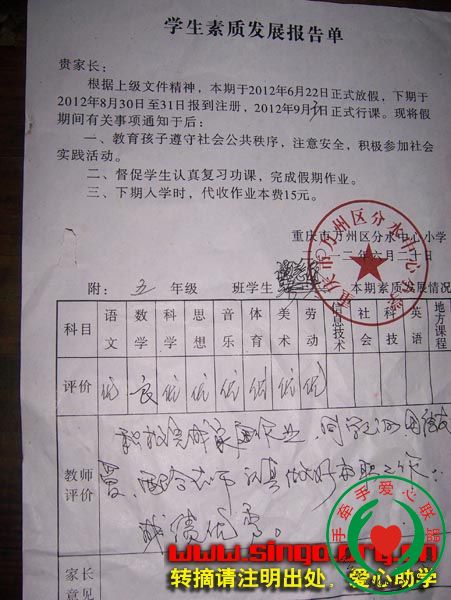 学生素质发展报告单
贵家长：
根据上级文件精神，本期于2012年6月22日正式放假，下期于
2012年8月30日至31日报到注册，2012年9月3日正式行课。现将假
期间有关事项通知于后：
一、教育孩子遵守社会公共秩序，注意安全，积极参加社会
实践活动。
二、督促学生认真复习功课，完成假期作业。
三、下期入学时，代收作业本费15元。
重庆市万州区分水中心小学
二〇一二年六月二十日
重庆市万州区分水中心小学
附：五年级 班学生 本期素质发展情况
科目 语文 数学 科学 思想 音乐 体育 美术 劳动 信息技术 社会 科技 英语 地方课程
评价 优 良 优 优 优 优 优 优
教师评价
积极完成家庭作业，同学之间团结友
爱，配合老师认真做好本职工作，
成绩优秀。
家长意见
手牵手爱心联盟
www.singo.org.cn
转摘请注明出处，爱心助学